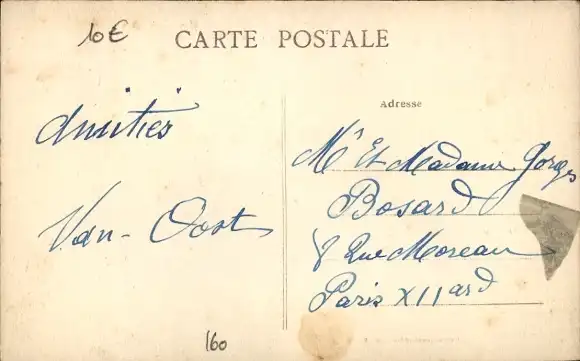 10€
CARTE POSTALE
Amitiés
Van-Oost
Adresse
Mr Et Madame Gorges
Bosard
8 Rue Moreau
Paris XII ard
160